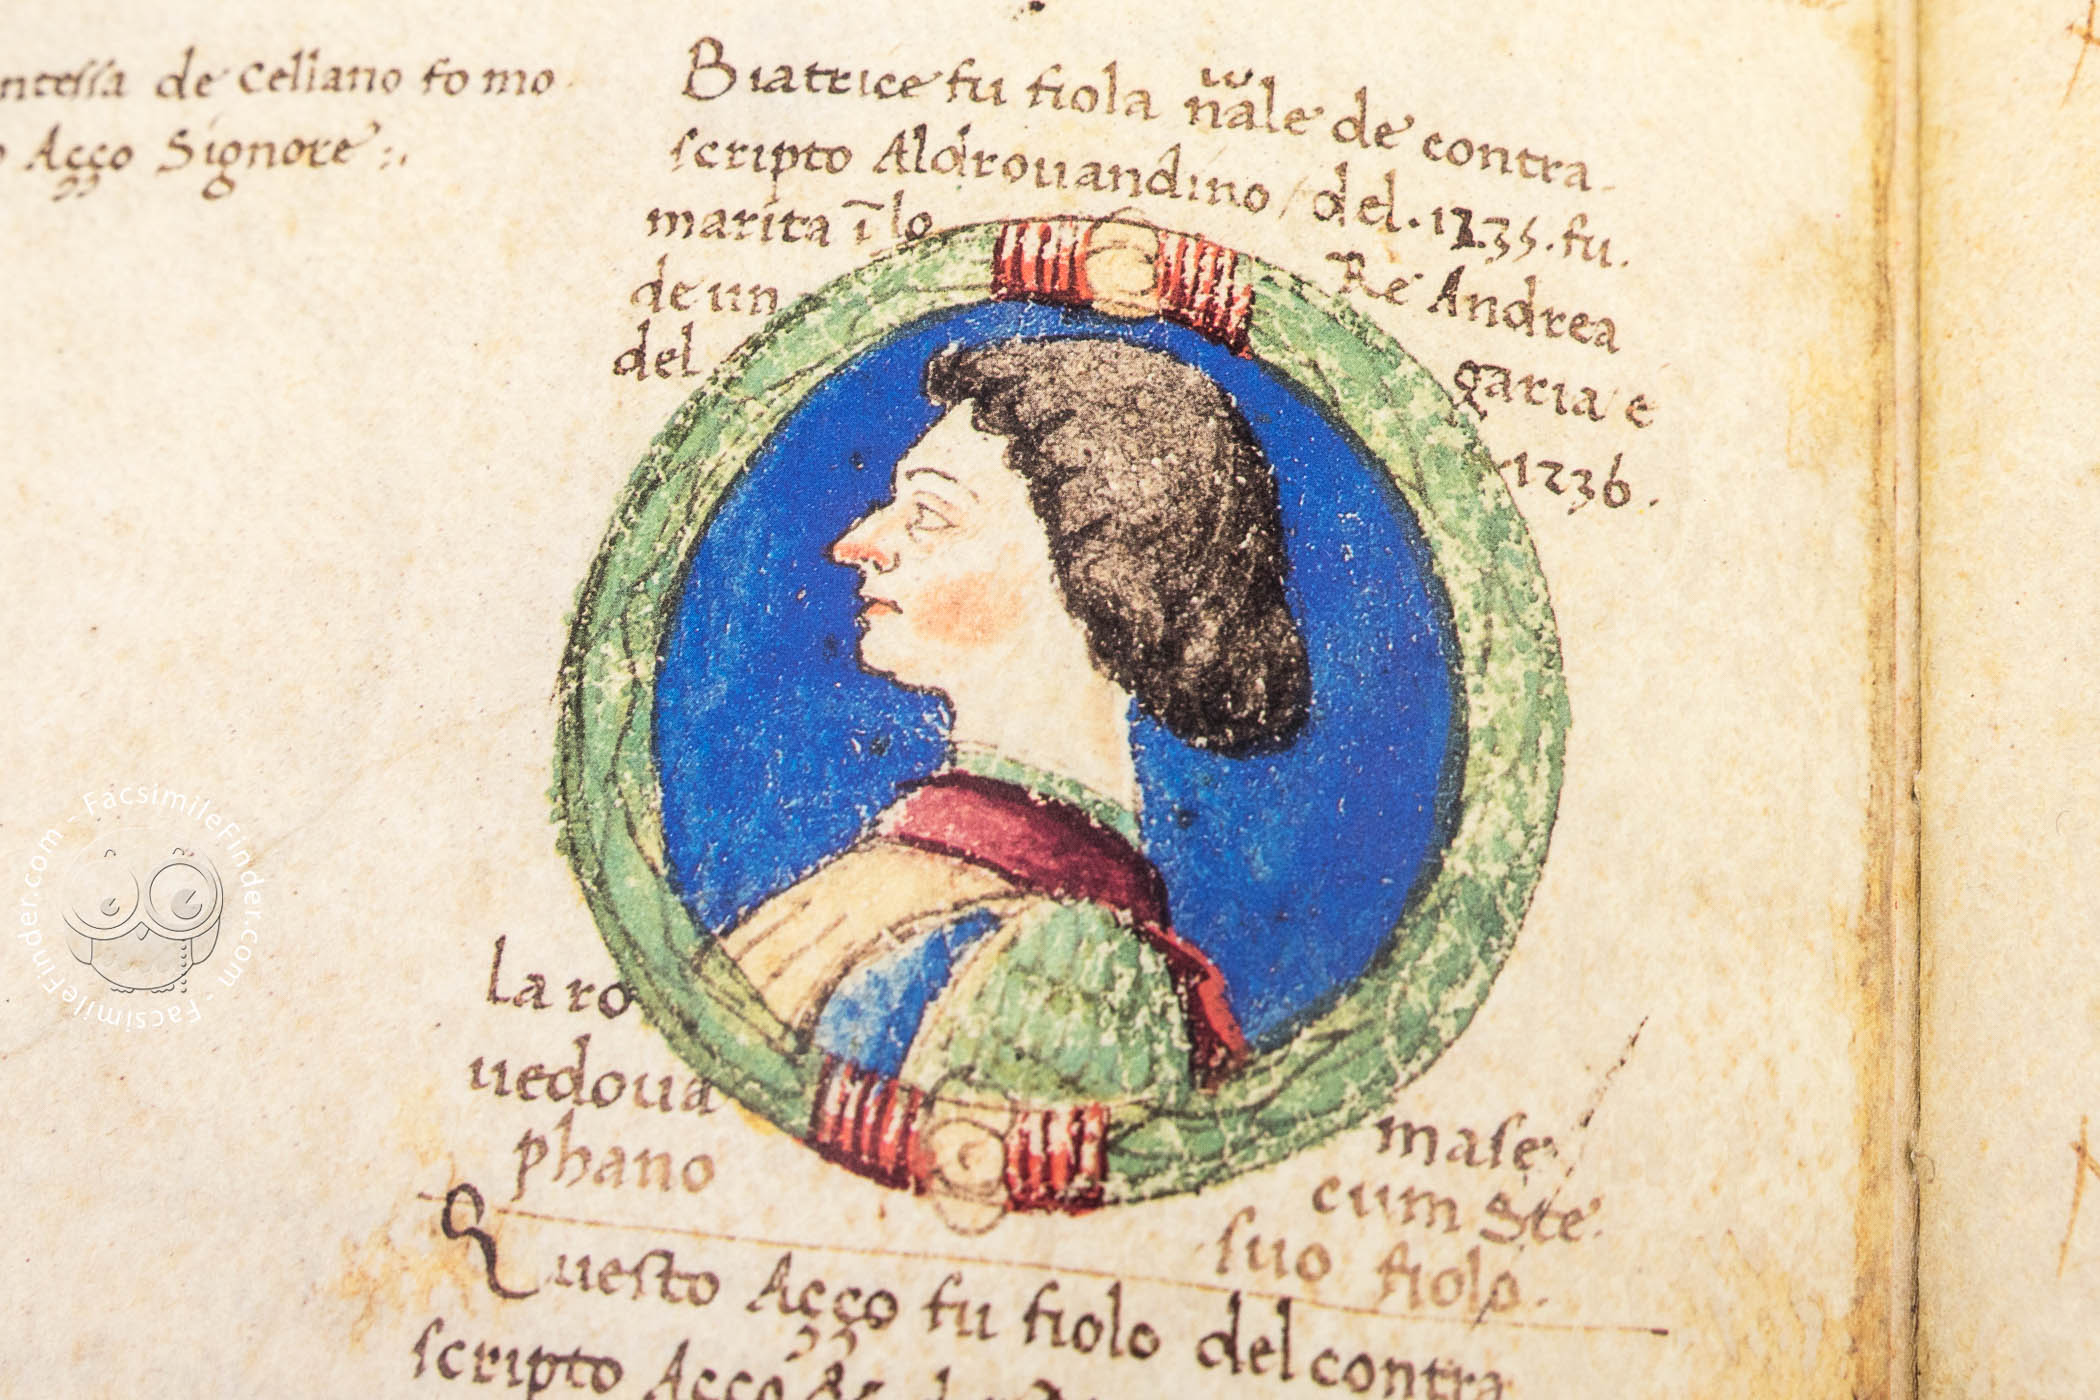 ntessa de Celiano fo mo
Acço Signore:.
Biatrice fu fiola ñale de contra
scripto Aldrouandino / del.1235.fu.
marita ĩ lo Re Andrea
de un garia e
del 1236.
La ro mase
uedoua cum Ste
phano suo fiolo.
Questo Acço fu fiolo del contra
scripto Acço
FacsimileFinder.com - FacsimileFinder.com -